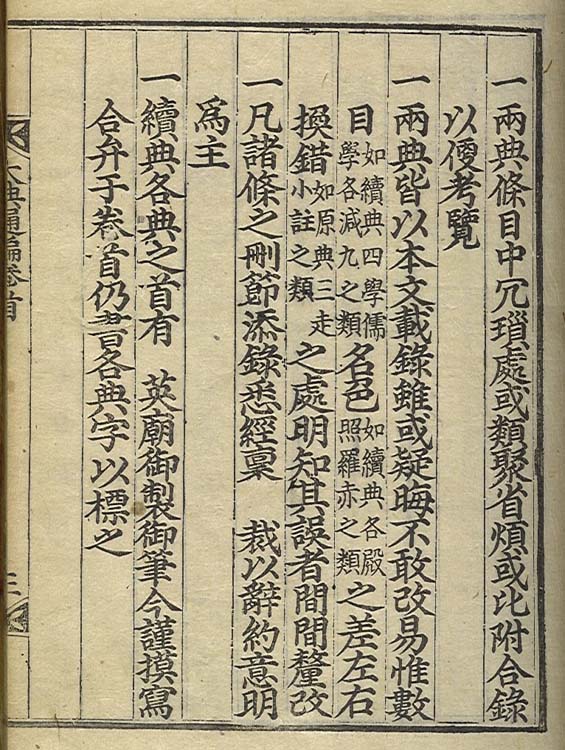 一兩典條目中冗瑣處或類聚省煩或比附合錄
以便考覽
一兩典皆以本文載錄雖或疑晦不敢改易惟數
目如續典四學儒學各減九之類名色如續典各殿照羅赤之類之差左右
換錯如原典三走小註之類之處明知其誤者間間釐改
一凡諸條之刪節添錄悉經稟 裁以辭約意明
爲主
一續典各典之首有 英廟御製御筆今謹摸寫
合弁于卷首仍書各典字以標之
大典通編卷首